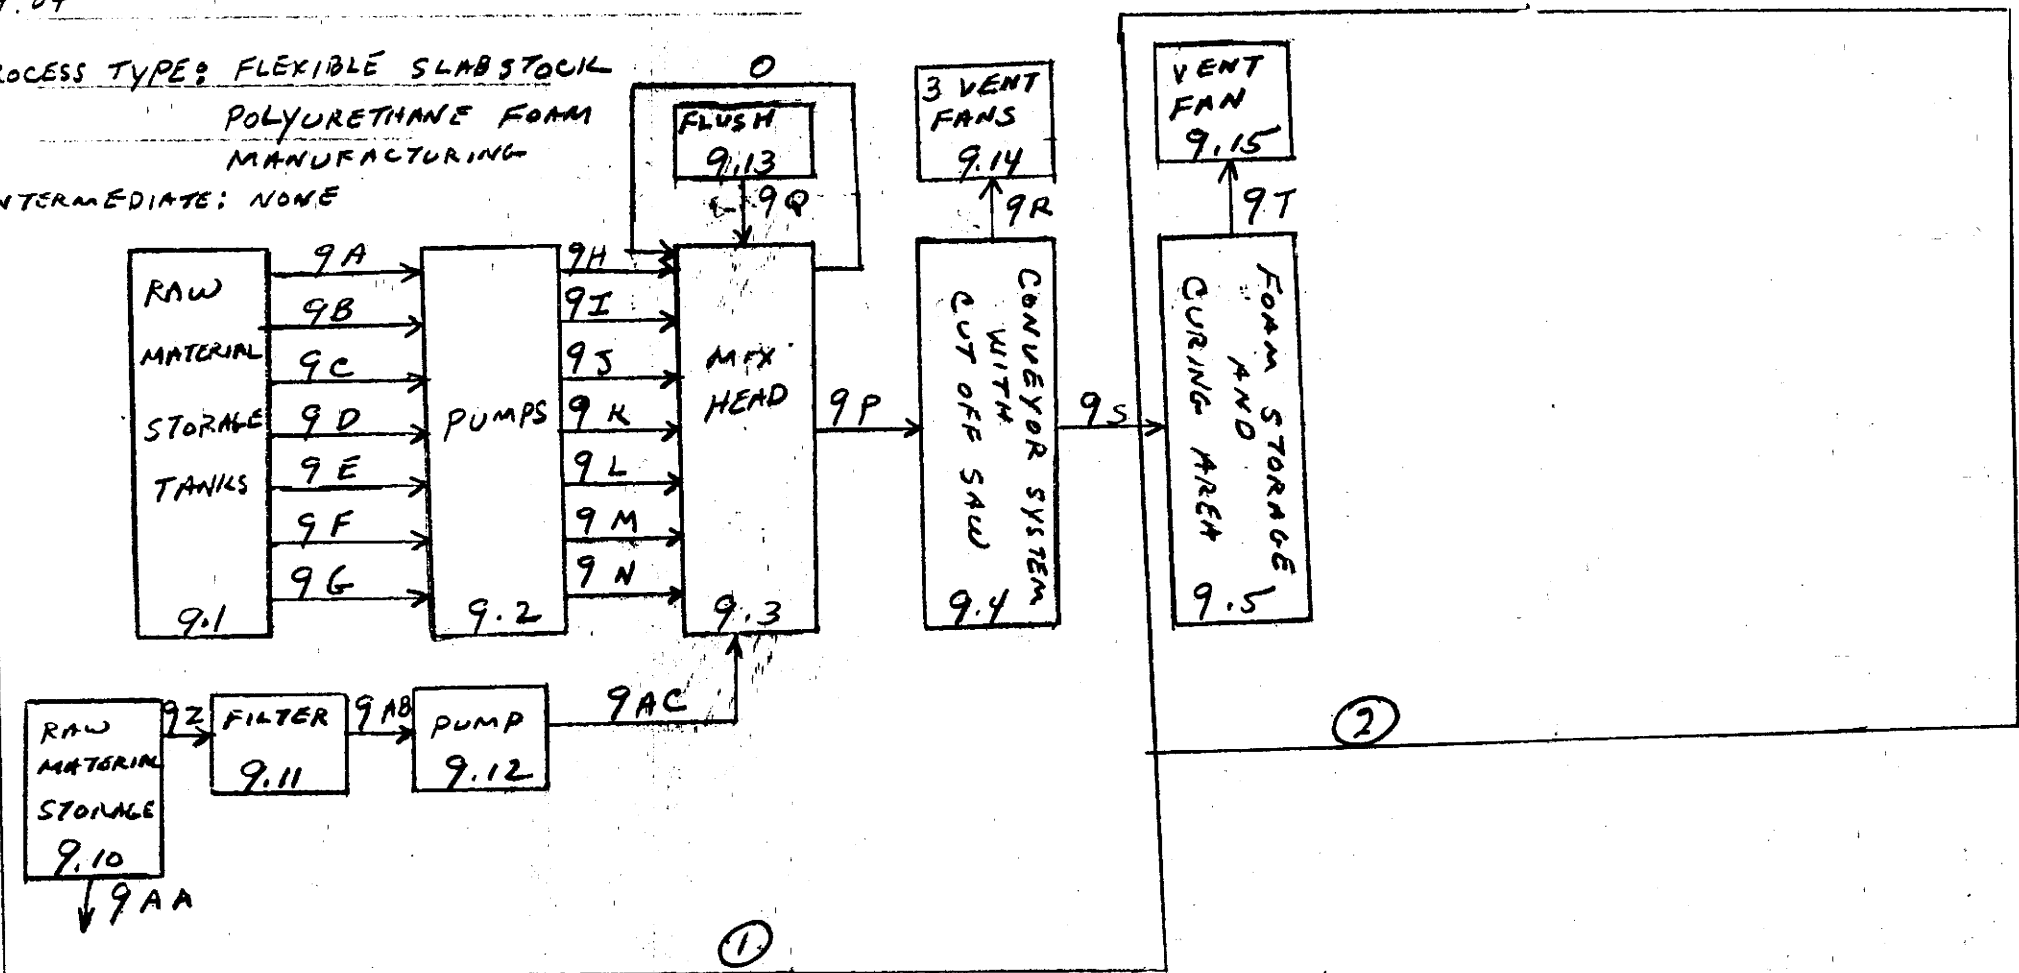 ROCESS TYPE: FLEXIBLE SLABSTOCK
POLYURETHANE FOAM
MANUFACTURING
NTERMEDIATE: NONE
O
FLUSH
9.13
9Q
3 VENT
FANS
9.14
9R
VENT
FAN
9.15
9T
RAW
MATERIAL
STORAGE
TANKS
9.1
9A
9B
9C
9D
9E
9F
9G
PUMPS
9.2
9H
9I
9J
9K
9L
9M
9N
MIX
HEAD
9.3
9P
CONVEYOR SYSTEM
WITH
CUT OFF SAW
9.4
9S
FOAM STORAGE
AND
CURING AREA
9.5
RAW
MATERIAL
STORAGE
9.10
9Z
FILTER
9.11
9AB
PUMP
9.12
9AC
9AA
1
2